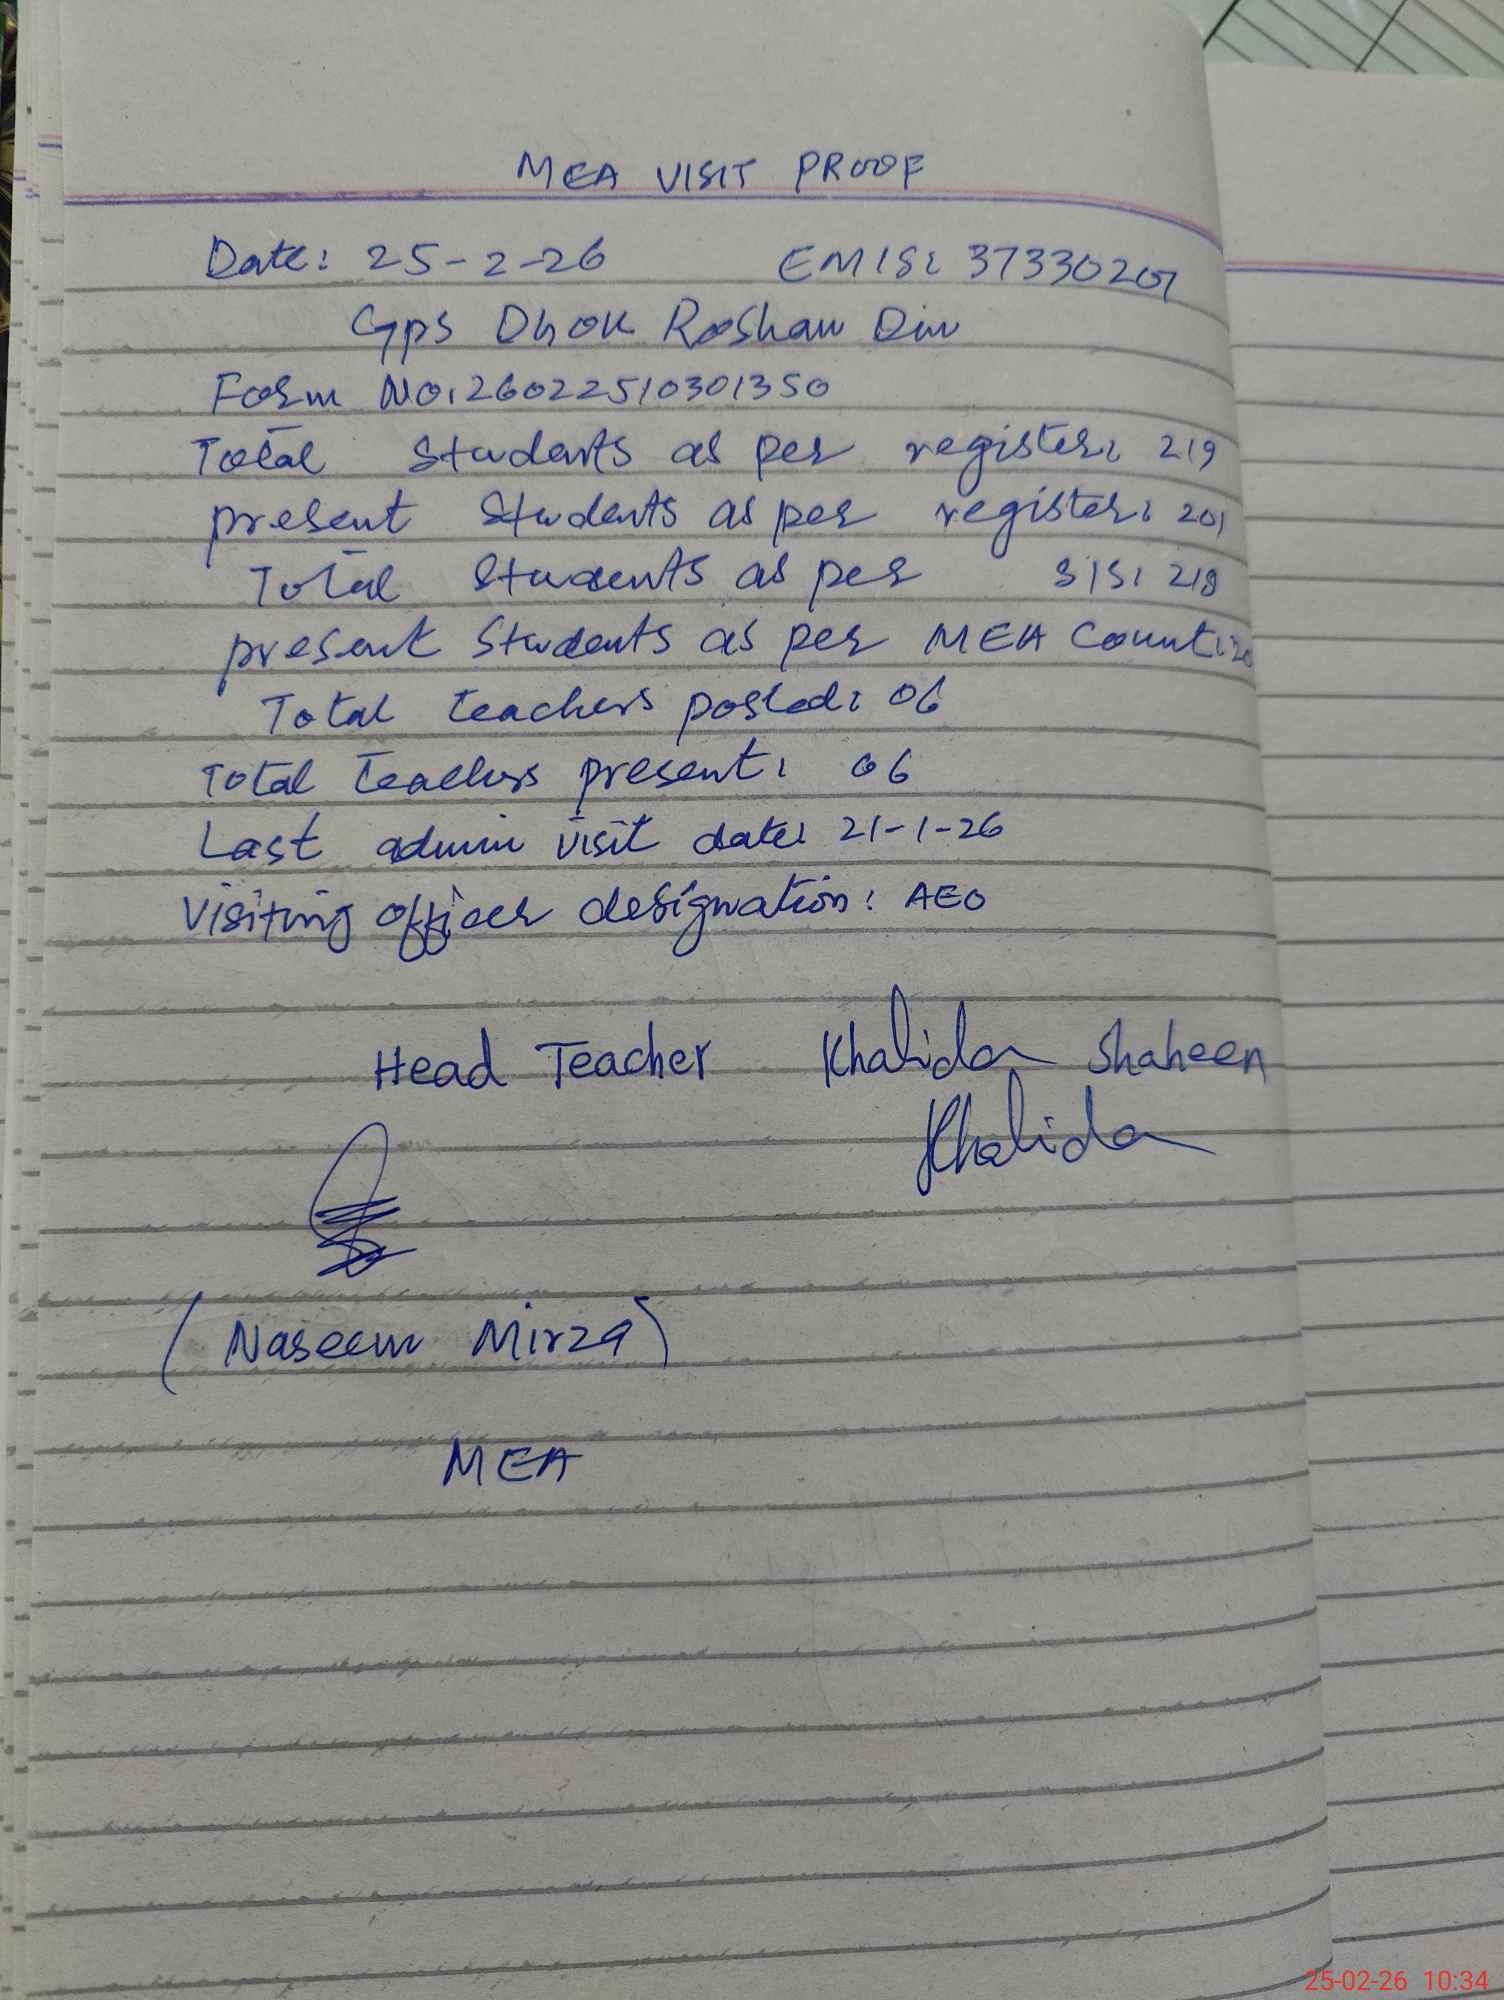 MEA VISIT PROOF
Date: 25-2-26 EMIS: 37330207
Gps Dhok Roshan Din
Form No: 26022510301350
Total Students as per register: 219
present Students as per register: 201
Total Students as per SIS: 219
present Students as per MEA Count:
Total teachers posted: 06
Total Teachers present: 06
Last admin visit date: 21-1-26
Visiting officer designation: AEO
Head Teacher Khalida Shaheen
Khalida
(Naseem Mirza)
MEA
25-02-26 10:34